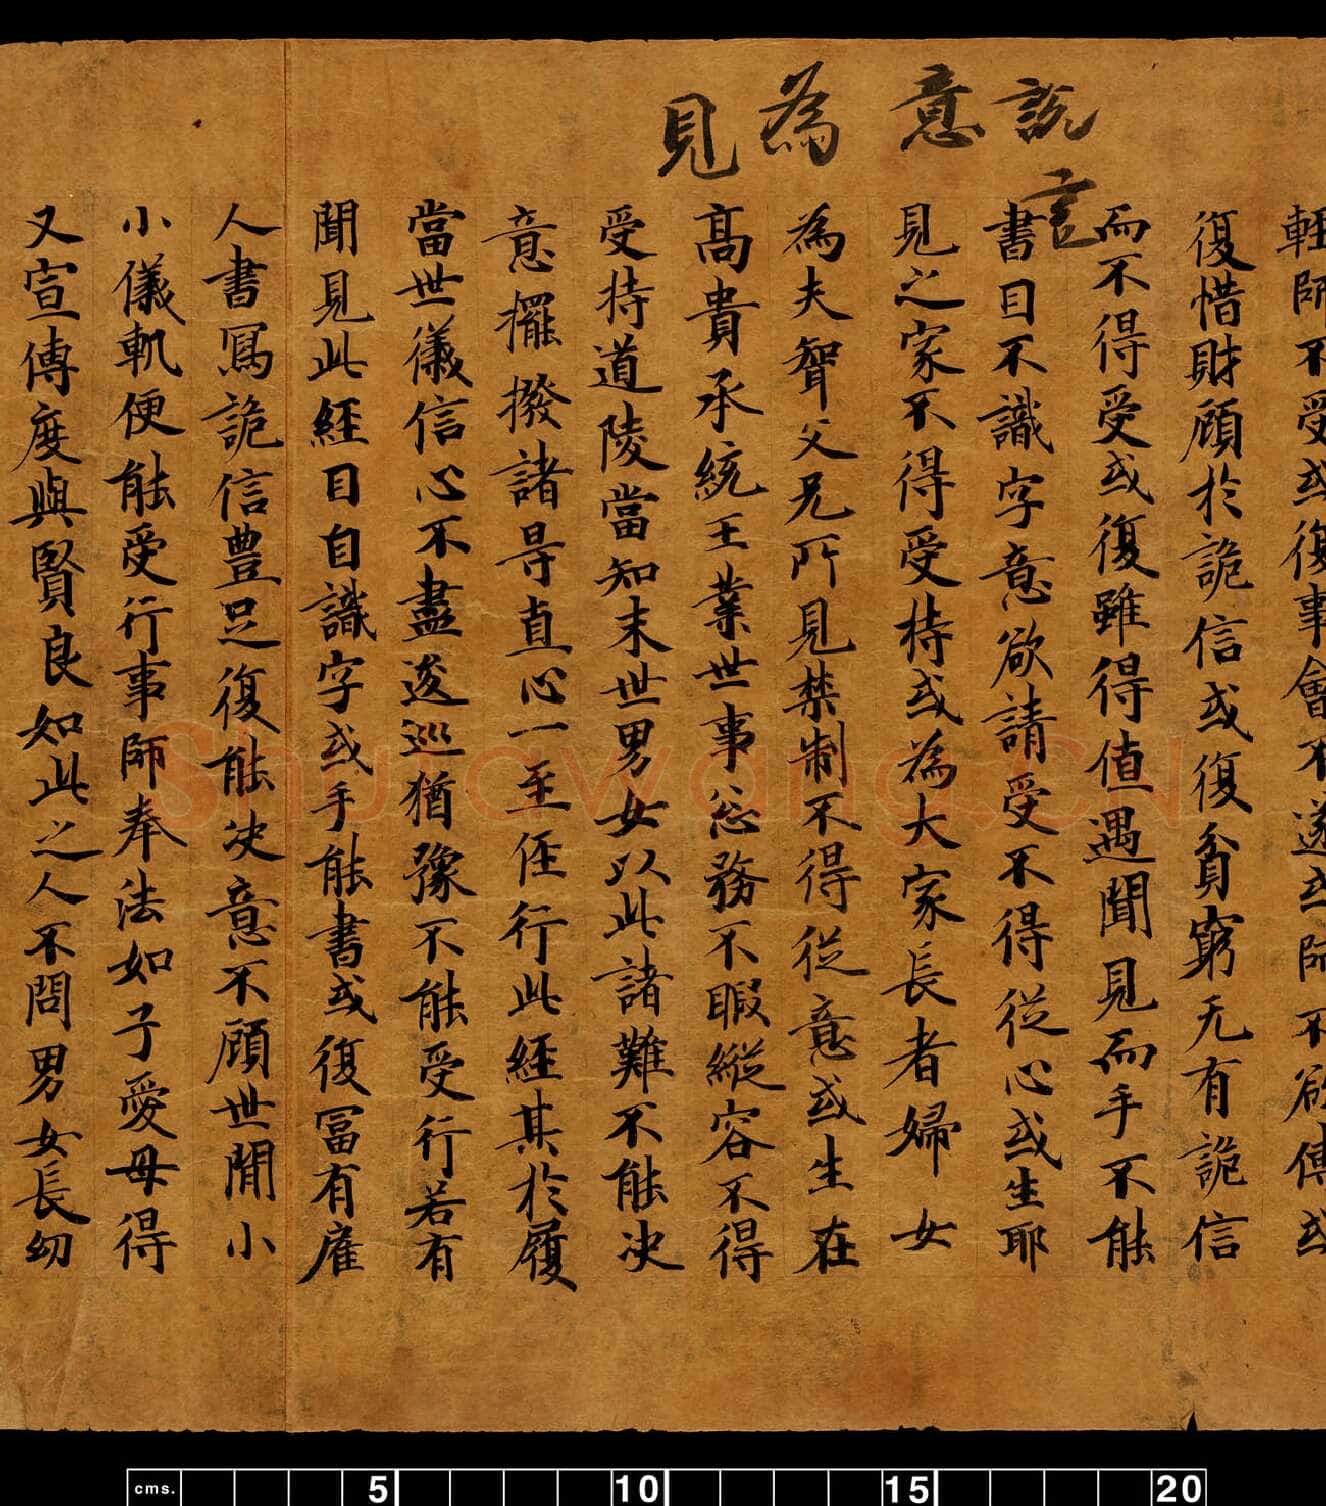 說意為見
言
輕師不受或復事會不遂或師不欲傳或
復惜財顧於詭信或復貧窮无有詭信
而不得受或復雖得值遇聞見而手不能
書目不識字意欲請受不得從心或生耶
見之家不得受持或為大家長者婦女
為夫聟父兄所見禁制不得從意或生在
高貴承統王業世事忩務不暇縱容不得
受持道陵當知末世男女以此諸難不能决
意擺撥諸㝵直心一至任行此經其於履
當世儀信心不盡逡巡猶豫不能受行若有
聞見此經目自識字或手能書或復冨有雇
人書寫詭信豊足復能决意不顧世間小
小儀軌便能受行事師奉法如子愛母得
又宣傳度與賢良如此之人不問男女長幼
Shufawang.CN
cms. 5 10 15 20